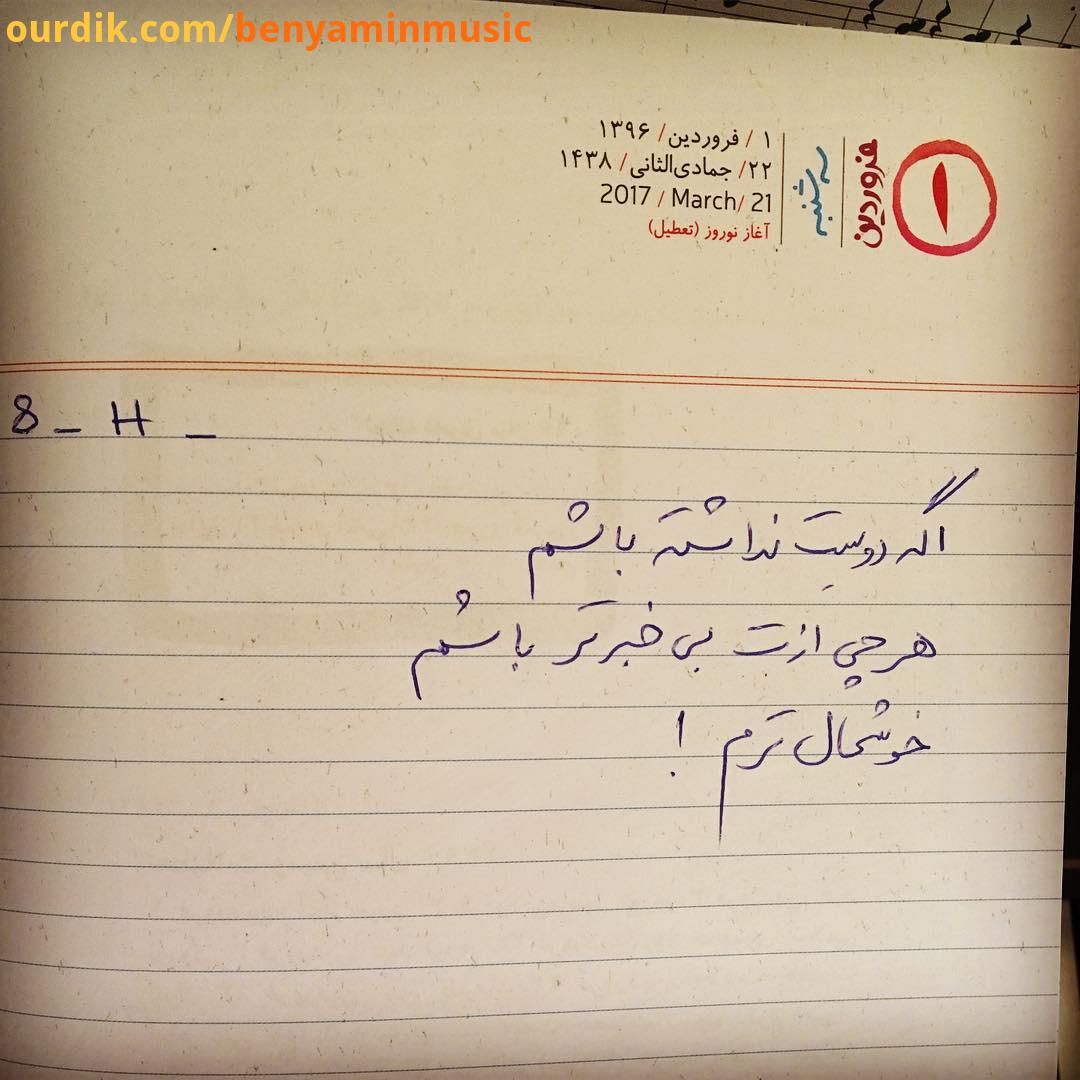 ourdik.com/benyaminmusic
۱
فروردین
سه شنبه
۱ / فروردین / ۱۳۹۶
۲۲/ جمادی‌الثانی/ ۱۴۳۸
2017 / March/ 21
آغاز نوروز (تعطیل)
8 _ H _
اگه دوست نداشته باشم
هرچی ازت بی خبرتر باشم
خوشحال ترم !